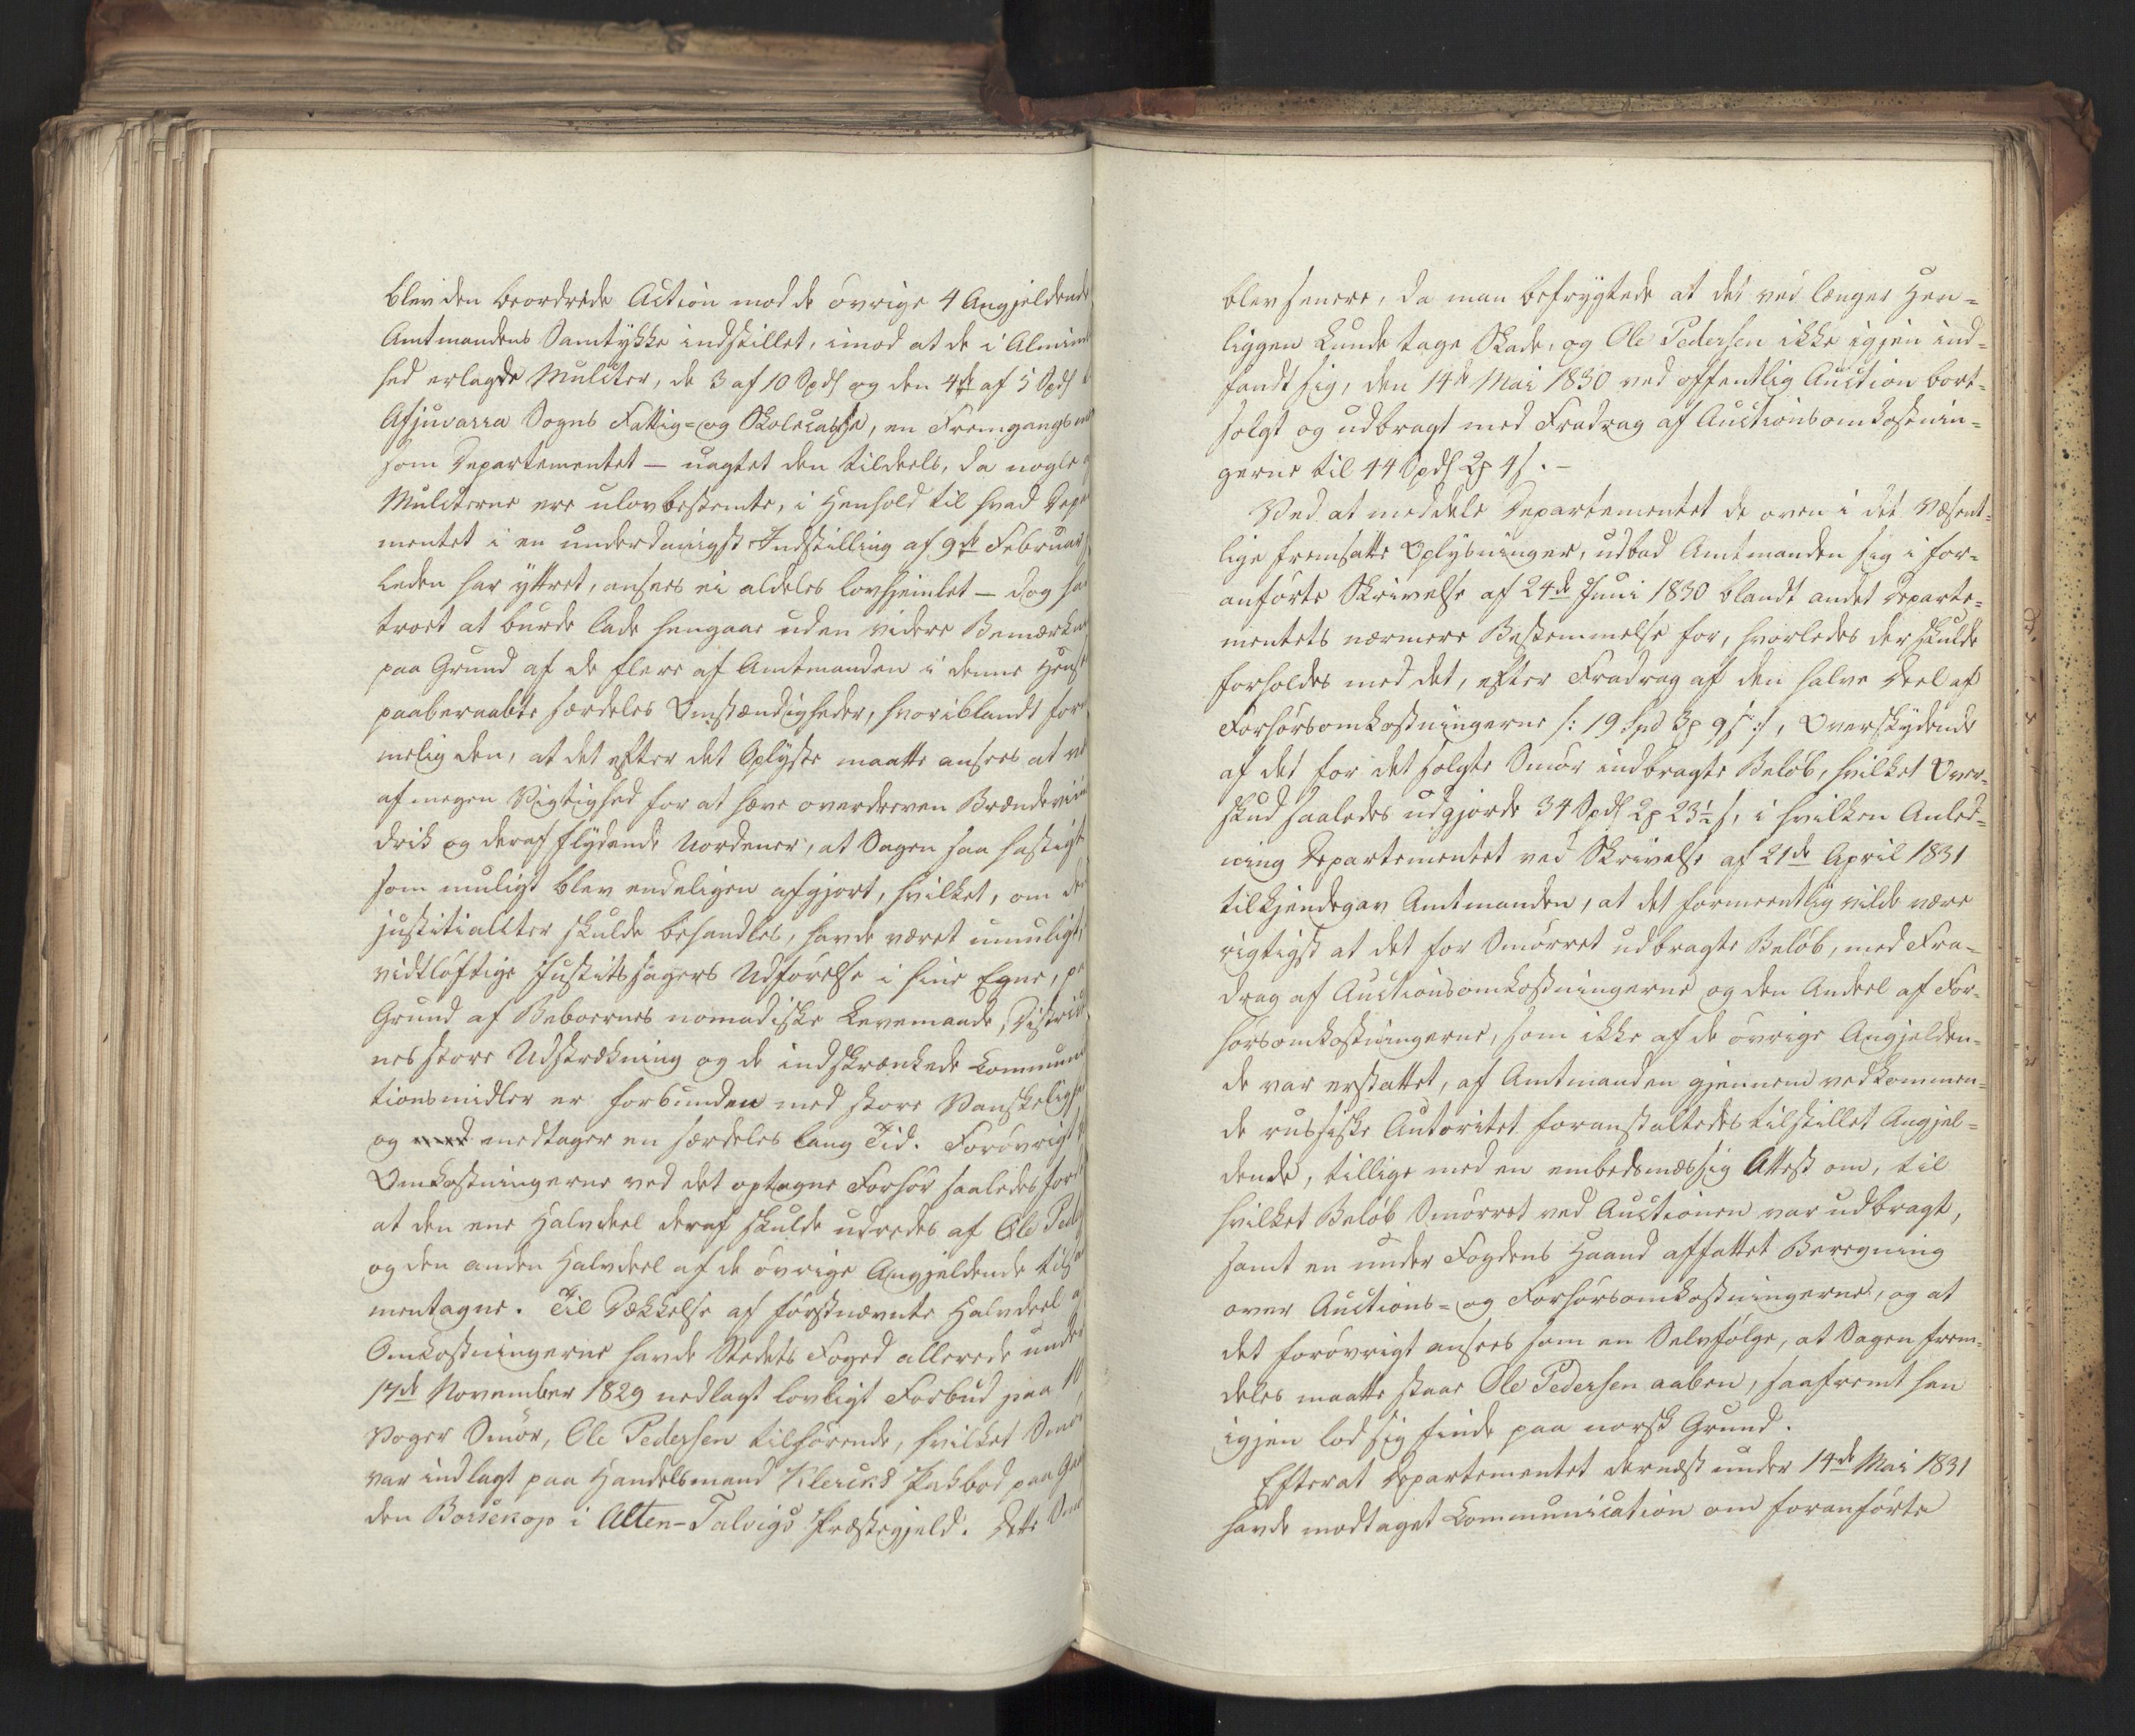 blev den beordrede Action mod de övrige 4 Angjeldende
Amtmandens Samtykke indstillet, imod at de i Almin
hed erlagde Mulcter, de 3 af 10 Spdl og den 4de af 5 Spdl
Afjuvarra Sogns Fattig- og Skolecasse, en Fremgangs
som Departementet — uagtet den tildeels, da nogle
Mulcterne ere ulovbestemte, i Henhold til hvad Depar
mentet i en underdanigst Indstilling af 9de Februar
leden har yttret, ansees ei aldeles lovhjemlet — dog ha
troet at burde lade hengaae uden videre Bemærkn
paa Grund af de flere af Amtmanden i denne Hens
paaberaabte særdeles Omstændigheder, hvoriblandt for
melig den, at det efter det Oplyste maatte ansees at
af megen Vigtighed for at hæve overdreven Brændeviin
drik og deraf flydende Uordener, at Sagen saa hastigt
som muligt blev endeligen afgjort, hvilket, om de
justitialiter skulde behandles, havde været umuligt,
vidtløftige Justitssagers Udførelse i hine Egne, pa
Grund af Beboernes nomadiske Levemaade, Distric
nes store Udstrækning og de indskrænkede Communi
tionsmidler er forbunden med store Vanskeligh
og med medtager en særdeles lang Tid. Forövrigt
Omkostningerne ved det optagne Forhör saaledes ford
at den ene Halvdeel deraf skulde udredes af Ole Peders
og den anden Halvdeel af de övrige Angjeldende tilsa
mentagne. Til Dækkelse af förstnævnte Halvdeel a
Omkostningerne havde Stedets Foged allerede under
17de November 1829 nedlagt lovligt Forbud paa 10
Voger Smör, Ole Pedersen tilhörende, hvilket Smör
var indlagt paa Handelsmand Klercks Pakbod paa Gaar
den Bossekop i Alten-Talvigs Præstegjeld. Dette Smö
blev senere, da man befrygtede at det ved længer Hen-
liggen kunde tage Skade, og Ole Pedersen ikke igjen ind-
fandt sig, den 14de Mai 1830 ved offentlig Auction bort-
solgt og udbragt med Fradrag af Auctionsomkostnin-
gerne til 44 Spdl 2 4 s. —
Ved at meddele Departementet de oven i det Væsent-
lige fremsatte Oplysninger, udbad Amtmanden sig i for-
anförte Skrivelse af 24de Juni 1830 blandt andet Departe-
mentets nærmere Bestemmelse for, hvorledes der skulde
forholdes med det, efter Fradrag af den halve Deel af
Forhörsomkostningerne /: 19 Spd 3 9 s :/, Overskydende
af det for det solgte Smör indbragte Belöb, hvilket Over-
skud saaledes udgjorde 34 Spdl 2 23½ s, i hvilken Anled-
ning Departementet ved Skrivelse af 21de April 1831
tilkjendegav Amtmanden, at det formeentlig vilde være
rigtigst at det for Smörret udbragte Belöb, med Fra-
drag af Auctionsomkostningerne og den Andeel af For-
hörsomkostningerne, som ikke af de övrige Angjelden-
de var erstattet, af Amtmanden gjennem vedkommen-
de russiske Autoritet foranstaltedes tilstillet Angjel-
dende, tillige med en embedsmæssig Attest om, til
hvilket Belöb Smörret ved Auctionen var udbragt,
samt en under Fogdens Haand affattet Beregning
over Auctions- og Forhörsomkostningerne, og at
det forövrigt ansees som en Selvfölge, at Sagen frem-
deles maatte staae Ole Pedersen aaben, saafremt han
igjen lod sig finde paa norsk Grund.
Efterat Departementet dernæst under 14de Mai 1831
havde modtaget Communication om foranförte